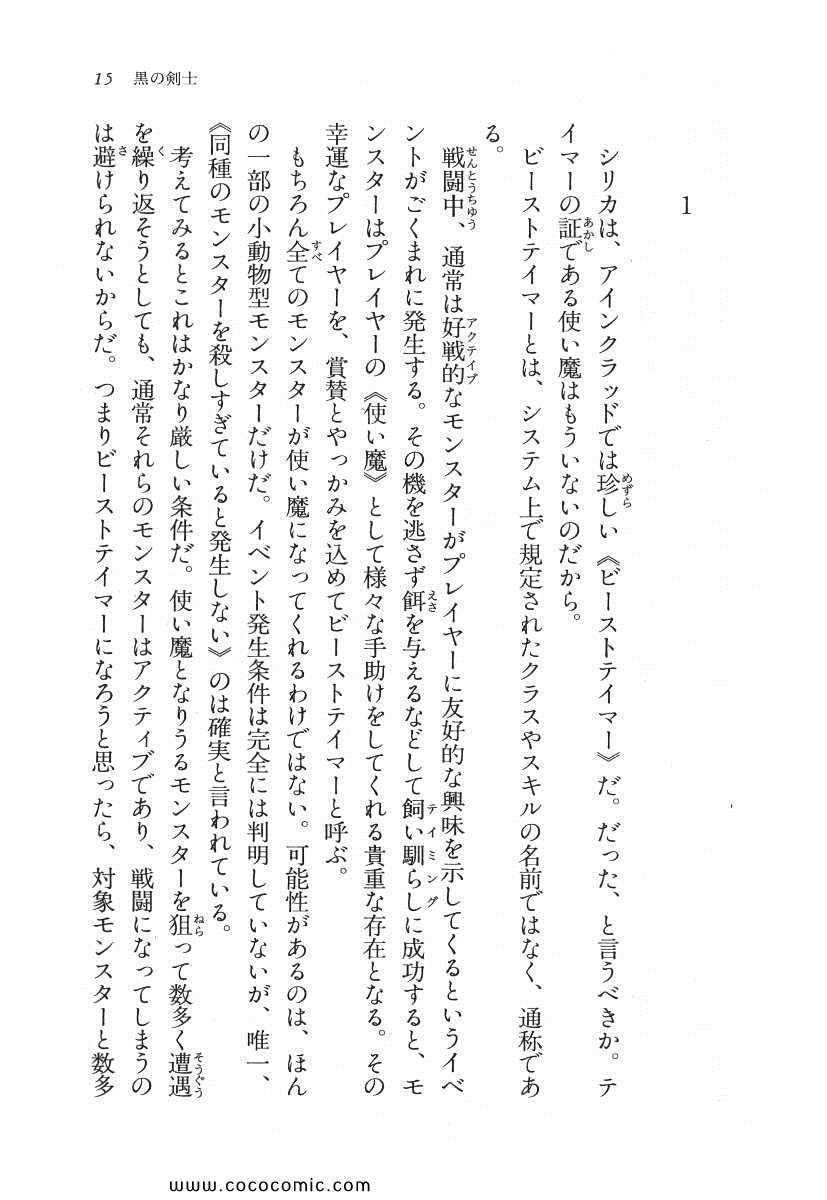 15 黒の剣士
1
シリカは、アインクラッドでは珍しい《ビーストテイマー》だ。だった、と言うべきか。テ
イマーの証である使い魔はもういないのだから。
ビーストテイマーとは、システム上で規定されたクラスやスキルの名前ではなく、通称であ
る。
戦闘中、通常は好戦的なモンスターがプレイヤーに友好的な興味を示してくるというイベ
ントがごくまれに発生する。その機を逃さず餌を与えるなどして飼い馴らしに成功すると、モ
ンスターはプレイヤーの《使い魔》として様々な手助けをしてくれる貴重な存在となる。その
幸運なプレイヤーを、賞賛とやっかみを込めてビーストテイマーと呼ぶ。
もちろん全てのモンスターが使い魔になってくれるわけではない。可能性があるのは、ほん
の一部の小動物型モンスターだけだ。イベント発生条件は完全には判明していないが、唯一、
《同種のモンスターを殺しすぎていると発生しない》のは確実と言われている。
考えてみるとこれはかなり厳しい条件だ。使い魔となりうるモンスターを狙って数多く遭遇
を繰り返そうとしても、通常それらのモンスターはアクティブであり、戦闘になってしまうの
は避けられないからだ。つまりビーストテイマーになろうと思ったら、対象モンスターと数多
www.cococomic.com